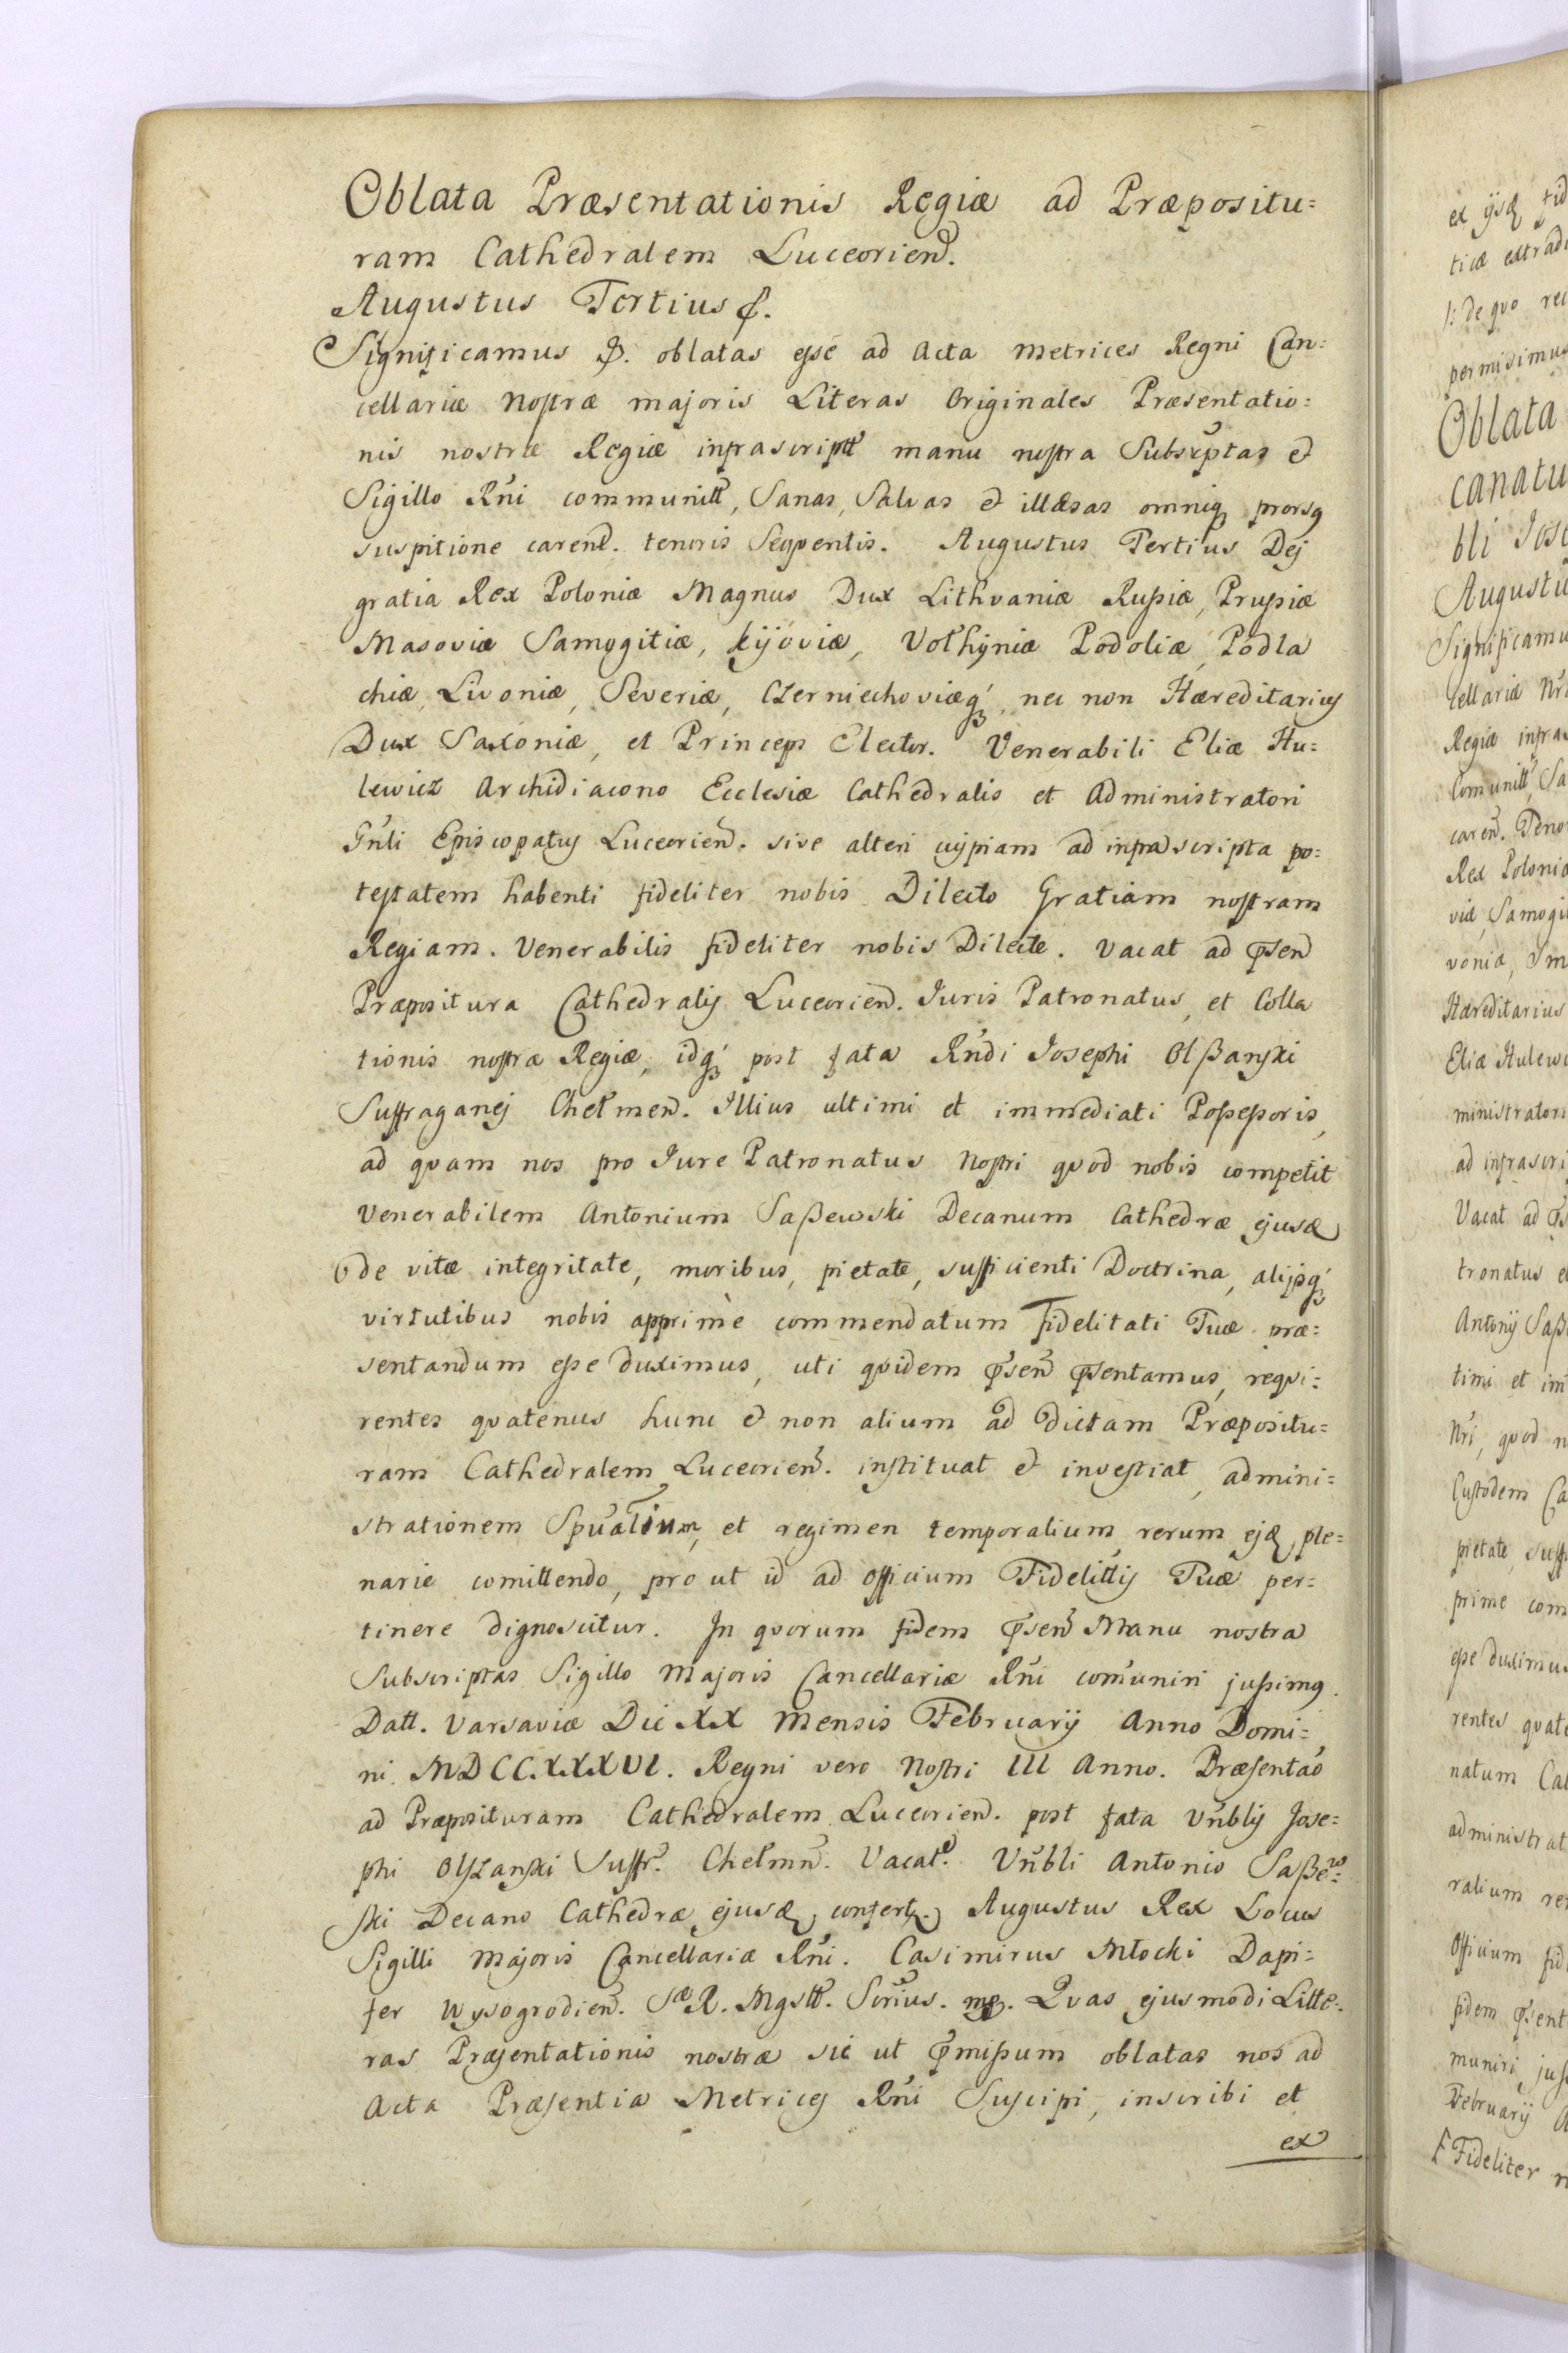 Oblata Præsentationis Regiæ ad Præpositu=
ram Cathedralem Luceorien̄.
Augustus Tertius &.
Significamus &. oblatas eße ad Acta metrices Regni Can=
cellariæ Nostræ majoris Literas Originales Præsentatio=
nis nostræ Regiæ infrascriptt manu nostra Subscrptas et
Sigillo Rñi communitt, Sanas, Salvas et illæsas omniq₃ prorsꝯ
suspitione caren̄. tenoris Seqventis. Augustus Tertius Dej
gratia Rex Poloniæ Magnus Dux Lithvaniæ Rußiæ, Prußiæ
Masoviæ Samogitiæ, Kijoviæ, Vołhyniæ Podoliæ, Podla
chiæ, Livoniæ, Severiæ, Czerniechoviæq₃, nec non Hæreditariꝯ
Dux Saxoniæ, et Princeps Elector. Venerabili Eliæ Hu=
lewicz Archidiacono Ecclesiæ Cathedralis et Administratori
Gñli Episcopatꝯ Luceorien̄. sive alteri cujpiam ad infrascripta po=
testatem habenti fideliter nobis Dilecto Gratiam nostram
Regiam. Venerabilis fideliter nobis Dilecte. Vacat ad p̄sen̄
Præpositura Cathedralis Luceorien̄. Juris Patronatus, et Colla
tionis nostræ Regiæ, idq₃ post fata Rñdi Josephi Olßanski
Suffraganej Chełmen̄. Illius ultimi et immediati Poßeßoris,
ad quam nos pro Jure Patronatus Nostri qvod nobis competit
Venerabilem Antonium Saßewski Decanum Cathedræ ejusd
de vitæ integritate, moribus, pietate, sufficienti Doctrina, alijsq₃
virtutibus nobis apprimè commendatum fidelitati Tuæ præ=
sentandum eße duximus, uti qvidem p̄sen̄ p̄sentamus, reqvi=
rentes qvatenus hunc et non alium ad dictam Præpositu=
ram Cathedralem Luceorien̄. instituat et investiat, admini=
strationem Spūalium, et regimen temporalium rerum ejd ple=
narie comittendo, pro ut id ad officium Fidelittis Tuæ per=
tinere dignoscitur. In qvorum fidem p̄sen̄ Manu nostra
Subscriptas Sigillo Majoris Cancellariæ Rñi com̄uniri jußimꝯ.
Datt. Varsaviæ Die XX Mensis Februarij Anno Domi=
ni. MDCCXXXVI. Regni vero Nostri III Anno. Præsentao̅
ad Præposituram Cathedralem Luceorien̄. post fata Vn̄blis Jose=
phi Olszanski Suffr. Chełmn̄. Vacatt. Vn̄bli Antonio Saßew=
ski Decano Cathedræ ejusd, confert. Augustus Rex Locus
Sigilli Majoris Cancellariæ Rñi. Casimirus Młocki Dapi=
fer Wysogrodien̄. Sæ R. Mgstt. Scrius. mp. Qvas ejusmodi Litte=
ras Præsentationis nostræ sic ut p̄mißum oblatas nos ad
Acta Præsentia Metrices Rñi Suscipi, inscribi et
ex
ex ijsd
ticæ extrad
/: de qvo
permisimus
Oblata
canatu
bli Jos
Augustu
Significamu
cellariæ Nr
Regiæ infra
Comunitt, Sa
caren̄. Teno
Rex Poloniæ
viæ, Samogi
voniæ,
Hæreditarius
Eliæ Hulew
ministratori
ad infrascri
Vacat ad
tronatus
Antonij Saß
timi et im
Nri, qvod n
Custodem Ca
pietate, suff
prime com
eße duximu
rentes qvat
natum Ca
administrat
ralium re
Officium fid
fidem p̄sent
muniri juß
Februarij A
Fideliter n